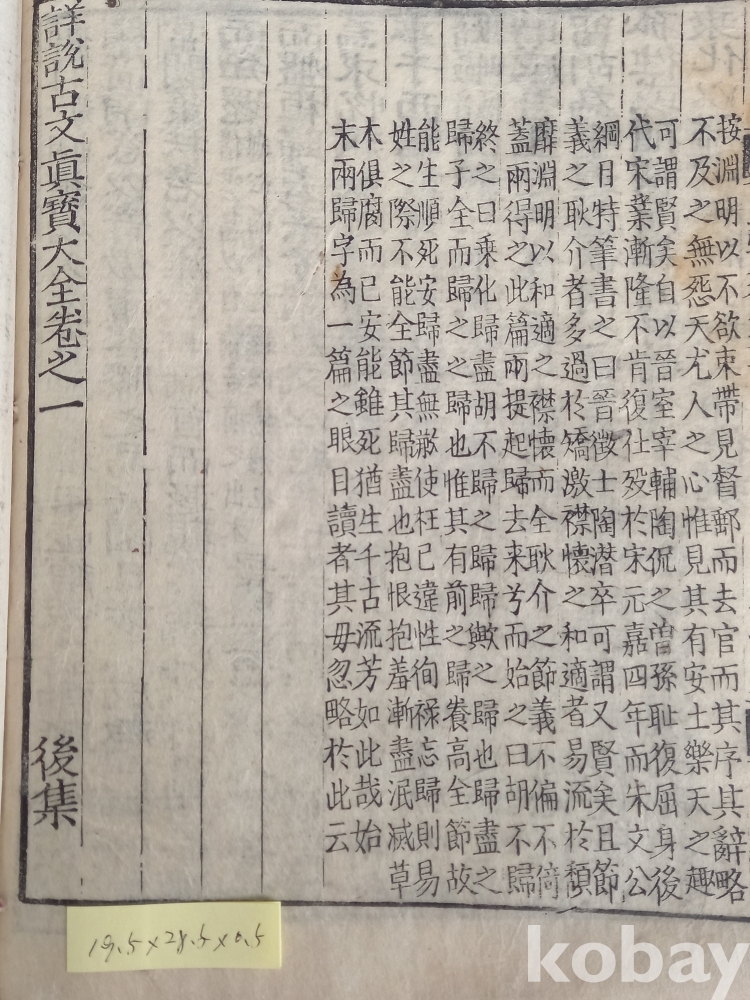 按淵明以不欲束帶見督郵而去官而其序其辭略
不及之無怨天尤人之心惟見其有安土樂天之趣
可謂賢矣自以晉室宰輔陶侃之曾孫恥復屈身後
代宋業漸隆不肯復仕殁於宋元嘉四年而朱文公
綱目特筆書之曰晉徵士陶潜卒可謂又賢矣且節
義之耿介者多過於矯激襟懷之和適者易流於頹
靡淵明以和適之襟懷而全耿介之節義不偏不倚
蓋兩得之此篇兩提起歸去来兮而始之曰胡不歸
終之曰乗化歸盡胡不歸之歸歸歟之歸也歸盡之
歸子全而歸之之歸也惟其有前之歸養高全節故
能生順死安歸盡無憾使枉已違性徇祿忘歸則易
姓之際不能全節其歸盡也抱恨抱羞漸盡泯滅草
木俱腐而已安能雖死猶生千古流芳如此哉始
末兩歸字為一篇之眼目讀者其毋忽略於此云
詳說古文眞寶大全卷之一 後集
19.5×28.5×0.5
kobay